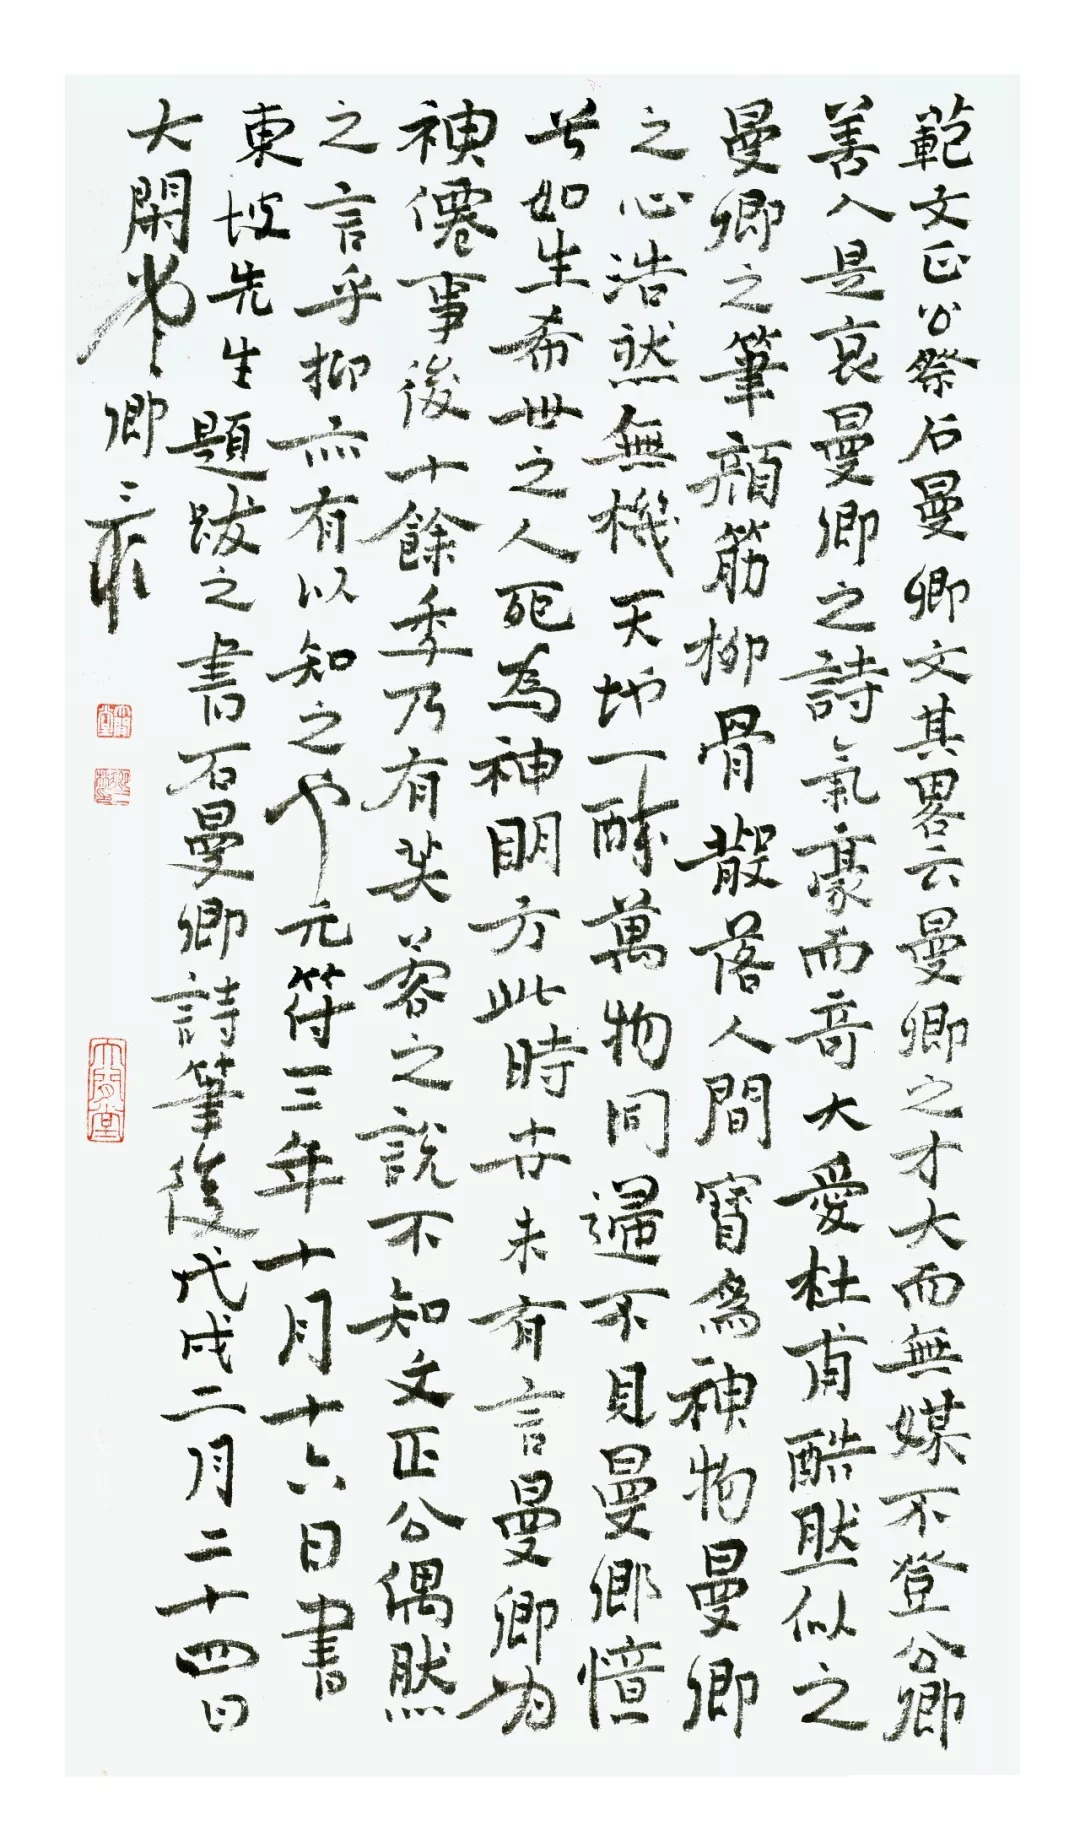 範文正公祭石曼卿文其畧云曼卿之才大而無媒不登公卿
善人是哀曼卿之詩氣豪而奇大愛杜甫酷然似之
曼卿之筆顏筋柳骨散落人間寶為神物曼卿
之心浩然無機天地一醉萬物同歸不見曼卿憶
兮如生希世之人死為神明方此時世未有言曼卿為
神僊事後十餘年乃有芙蓉之說不知文正公偶然
之言乎抑亦有以知之也元符三年十月十六日書
東坡先生題跋之書石曼卿詩筆後戊戌二月二十四日
大閑堂卿三
大閑堂